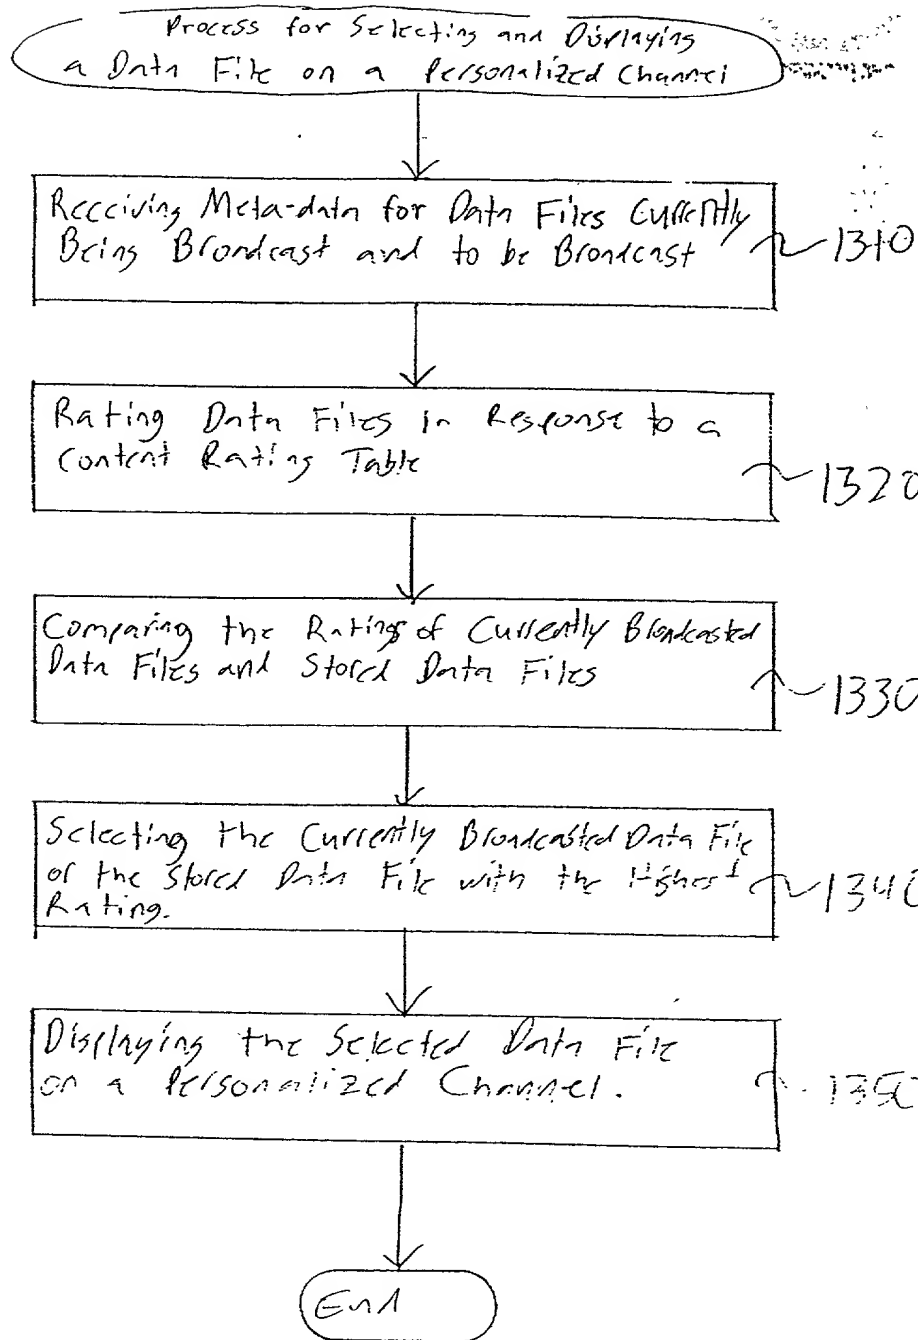 Process for Selecting and Displaying
a Data File on a Personalized Channel
Receiving Meta-data for Data Files Currently
Being Broadcast and to be Broadcast
1310
Rating Data Files in Response to a
Content Rating Table
1320
Comparing the Ratings of Currently Broadcasted
Data Files and Stored Data Files
1330
Selecting the Currently Broadcasted Data File
or the Stored Data File with the Highest
Rating.
1340
Displaying the Selected Data File
on a Personalized Channel.
1350
End